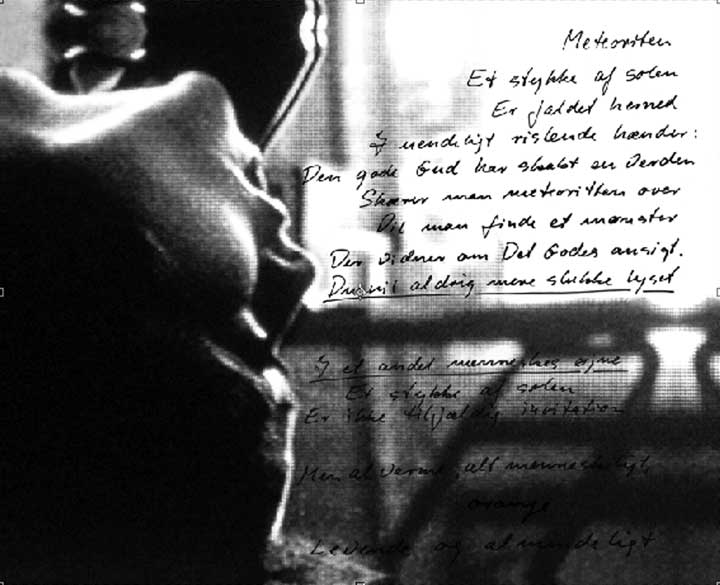 Meteoriten
Et stykke af solen
Er faldet herned
I uendeligt rislende hænder:
Den gode Gud har skabt en Verden
Skærer man meteoritten over
Vil man finde et mønster
Der vidner om Det Godes ansigt.
Du vil aldrig mere slukke lyset
I et andet menneskes øjne
Et stykke af solen
Er ikke tilfældig invitation
Men al varme, alt menneskeligt,
orange
Levende og almindeligt